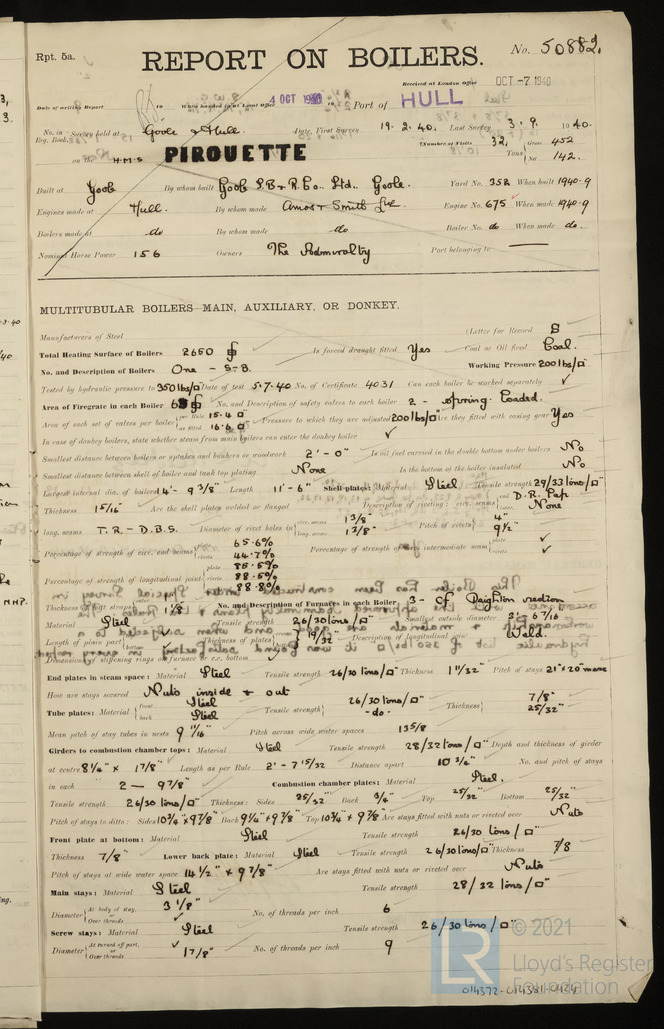 Rpt. 5a.
REPORT ON BOILERS.
No. 50882.
Received at London Office OCT -7 1940
Date of writing Report 19 When handed in at Local Office 4 OCT 1940 19 Port of HULL
No. in Reg. Book. Survey held at Goole & Hull. Date, First Survey 19.2.40. Last Survey 3.9. 1940.
on the H.M.S PIROUETTE (Number of Visits 32) Tons Gross 452 Net 142.
Built at Goole By whom built Goole S.B & R. Co. Ltd. Goole. Yard No. 352 When built 1940.9
Engines made at Hull. By whom made Amos & Smith Ltd Engine No. 675 When made 1940.9
Boilers made at do By whom made do Boiler No. do When made do.
Nominal Horse Power 156 Owners The Admiralty Port belonging to
MULTITUBULAR BOILERS—MAIN, AUXILIARY, OR DONKEY.
Manufacturers of Steel (Letter for Record S
Total Heating Surface of Boilers 2650 Is forced draught fitted Yes Coal or Oil fired Coal.
No. and Description of Boilers One - S.B. Working Pressure 200 lbs/□"
Tested by hydraulic pressure to 350 lbs/□" Date of test 5.7.40 No. of Certificate 4031 Can each boiler be worked separately ✓
Area of Firegrate in each Boiler No. and Description of safety valves to each boiler 2 - Spring Loaded.
Area of each set of valves per boiler per Rule 15.4 □" as fitted 16.6 □" Pressure to which they are adjusted 200 lbs/□" Are they fitted with easing gear Yes
In case of donkey boilers, state whether steam from main boilers can enter the donkey boiler ✓
Smallest distance between boilers or uptakes and bunkers or woodwork 2'-0" Is oil fuel carried in the double bottom under boilers No
Smallest distance between shell of boiler and tank top plating None Is the bottom of the boiler insulated No
Largest internal dia. of boilers 14'-9 3/8" Length 11'-6" Shell plates: Material Steel Tensile strength 29/33 tons/□"
Thickness 15/16" Are the shell plates welded or flanged Description of riveting: circ. seams end D.R. Lap None
long. seams T.R.-D.B.S. Diameter of rivet holes in circ. seams 1 3/8" long. seams 1 3/8" Pitch of rivets 4" 9 1/2"
Percentage of strength of circ. end seams plate 65.6% rivets 44.7% Percentage of strength of circ. intermediate seam plate ✓ rivets ✓
Percentage of strength of longitudinal joint plate 85.5% rivets 88.5% 88.8%
Thickness of butt straps 1 1/8" No. and Description of Furnaces in each Boiler 3 - of Deighton section
Material Steel Tensile strength 26/30 tons/□" Smallest outside diameter 3'-6 7/16
Length of plain part Thickness of plates 19/32" Description of longitudinal joint Weld.
Dimensions of stiffening rings on furnace or c.c. bottom
End plates in steam space: Material Steel Tensile strength 26/30 tons/□" Thickness 1 11/32" Pitch of stays 21" × 20" mean
How are stays secured Nuts inside & out
Tube plates: Material front Steel back Steel Tensile strength 26/30 tons/□" -do- Thickness 7/8" 25/32"
Mean pitch of stay tubes in nests 9 11/16" Pitch across wide water spaces 13 5/8
Girders to combustion chamber tops: Material Steel Tensile strength 28/32 tons/□" Depth and thickness of girder
at centre 8 1/4" × 1 7/8" Length as per Rule 2'-7 15/32 Distance apart 10 3/4" No. and pitch of stays
in each 2 - 9 7/8" Combustion chamber plates: Material Steel.
Tensile strength 26/30 tons/□" Thickness: Sides 25/32" Back 3/4" Top 25/32" Bottom 25/32"
Pitch of stays to ditto: Sides 10 3/4" × 9 7/8" Back 9 1/4" × 9 7/8" Top 10 3/4" × 9 7/8 Are stays fitted with nuts or riveted over Nuts
Front plate at bottom: Material Steel Tensile strength 26/30 tons/□"
Thickness 7/8" Lower back plate: Material Steel Tensile strength 26/30 tons/□" Thickness 7/8
Pitch of stays at wide water space 14 1/2" × 9 7/8" Are stays fitted with nuts or riveted over Nuts
Main stays: Material Steel Tensile strength 28/32 tons/□"
Diameter At body of stay, or Over threads 3 1/8" ✓ No. of threads per inch 6
Screw stays: Material Steel Tensile strength 26/30 tons/□"
Diameter At turned off part, or Over threads ✓ 1 7/8" No. of threads per inch 9
LR © 2021
Lloyd's Register
Foundation
014372-014381-0124